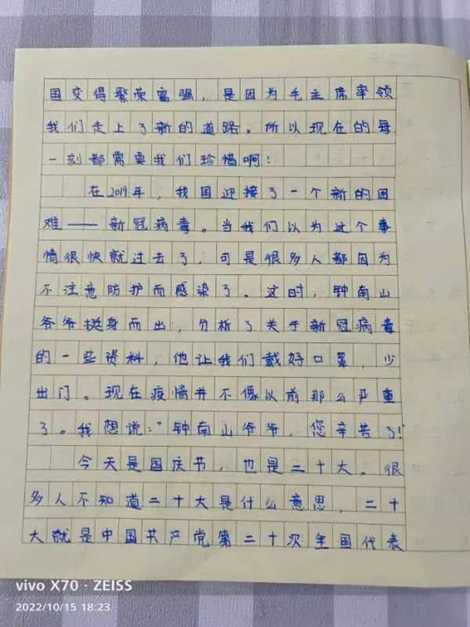 国变得繁荣富强，是因为毛主席率领
我们走上了新的道路。所以现在的每
一刻都需要我们珍惜啊！
在2019年，我国迎接了一个新的困
难——新冠病毒。当我们以为这个事
情很快就过去了，可是很多人都因为
不注意防护而感染了。这时，钟南山
爷爷挺身而出，分析了关于新冠病毒
的一些资料，他让我们戴好口罩，少
出门。现在疫情并不像以前那么严重
了。我想说：“钟南山爷爷，您辛苦了！
今天是国庆节，也是二十大。很
多人不知道二十大是什么意思，二十
大就是中国共产党第二十次全国代表
vivo X70 · ZEISS
2022/10/15 18:23